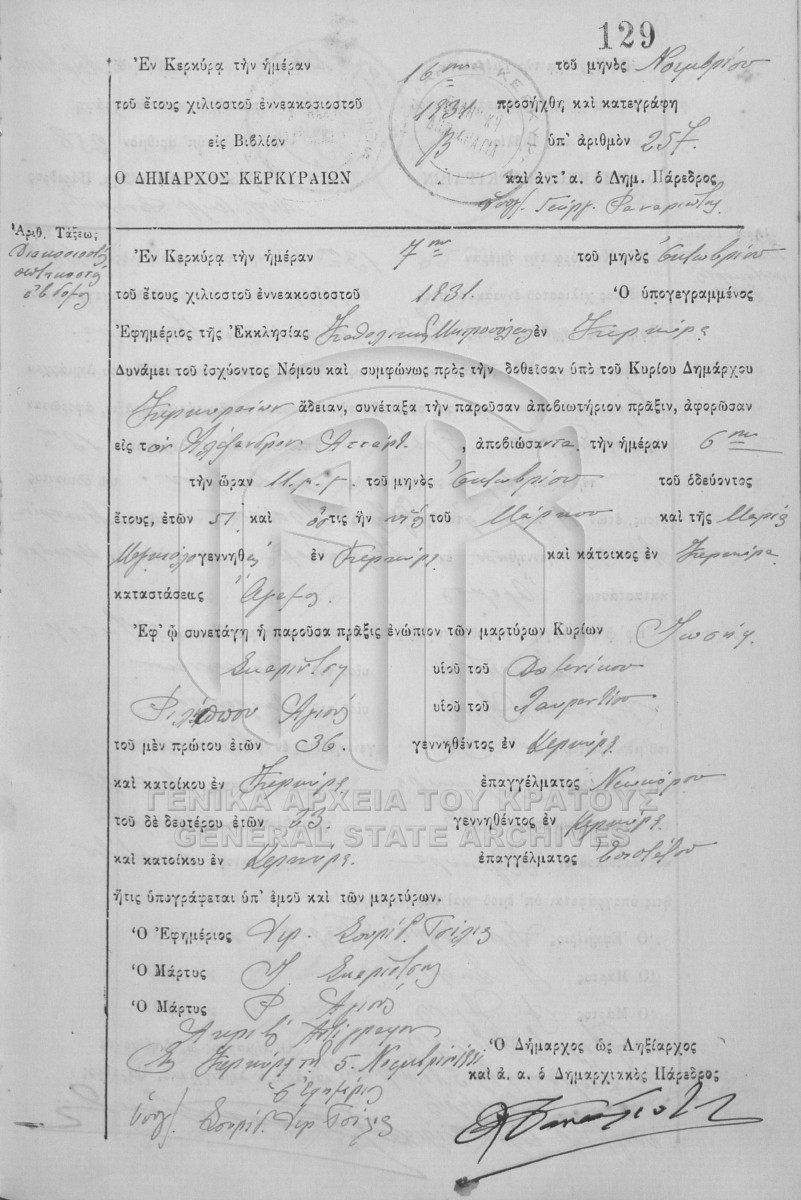 129
Ἐν Κερκύρᾳ τὴν ἡμέραν 16ην τοῦ μηνὸς Νοεμβρίου
τοῦ ἔτους χιλιοστοῦ ἐννεακοσιοστοῦ 1931 προσήχθη καὶ κατεγράφη
εἰς Βιβλίον Β ὑπ' ἀριθμὸν 257.
Ο ΔΗΜΑΡΧΟΣ ΚΕΡΚΥΡΑΙΩΝ καὶ ἀντ' α. ὁ Δημ. Πάρεδρος
ὑπογ. Γεώργ. Φαναριώτης
Ἀριθ. Τάξεως
Διακοσιοστὸς
ἕβδομος
Ἐν Κερκύρᾳ τὴν ἡμέραν 7ην τοῦ μηνὸς Ὀκτωβρίου
τοῦ ἔτους χιλιοστοῦ ἐννεακοσιοστοῦ 1931. Ὁ ὑπογεγραμμένος
Ἐφημέριος τῆς Ἐκκλησίας Καθολικῆς Μητροπόλεως ἐν Κερκύρᾳ
Δυνάμει τοῦ ἰσχύοντος Νόμου καὶ συμφώνως πρὸς τὴν δοθεῖσαν ὑπὸ τοῦ Κυρίου Δημάρχου
Κερκυραίων ἄδειαν, συνέταξα τὴν παροῦσαν ἀποβιωτήριον πρᾶξιν, ἀφορῶσαν
εἰς τὸν Ἀλέξανδρον , ἀποβιώσαντα τὴν ἡμέραν 6ην
τὴν ὥραν 11 μ. μ. τοῦ μηνὸς Ὀκτωβρίου τοῦ ὁδεύοντος
ἔτους, ἐτῶν 51 καὶ ὅστις ἦν υἱὸς τοῦ Μάρκου καὶ τῆς Μαρίας
γεννηθεὶς ἐν Κερκύρᾳ καὶ κάτοικος ἐν Κερκύρᾳ
καταστάσεως Ἄγαμος.
Ἐφ' ᾧ συνετάγη ἡ παροῦσα πρᾶξις ἐνώπιον τῶν μαρτύρων Κυρίων Ἰωσὴφ
Σκαρίντση υἱοῦ τοῦ Ἀντωνίου
Φιλίππου Ἀγιοῦς υἱοῦ τοῦ Λαυρεντίου
τοῦ μὲν πρώτου ἐτῶν 36. γεννηθέντος ἐν Κερκύρᾳ
καὶ κατοίκου ἐν Κερκύρᾳ ἐπαγγέλματος Νεωκόρου
τοῦ δὲ δευτέρου ἐτῶν 23. γεννηθέντος ἐν Κερκύρᾳ
καὶ κατοίκου ἐν Κερκύρᾳ ἐπαγγέλματος
ΓΕΝΙΚΑ ΑΡΧΕΙΑ ΤΟΥ ΚΡΑΤΟΥΣ
GENERAL STATE ARCHIVES
ἥτις ὑπογράφεται ὑπ' ἐμοῦ καὶ τῶν μαρτύρων.
Ὁ Ἐφημέριος Σπυρίδ.
Ὁ Μάρτυς Ι. Σκαρίντσης
Ὁ Μάρτυς Φ. Ἀγιοῦς
Ἀκριβὲς Ἀντίγραφον
Ἐν Κερκύρᾳ τῇ 5 Νοεμβρίου 1931
Ὁ Ἐφημέριος
ὑπογ. Σπυρίδ.
Ὁ Δήμαρχος ὡς Ληξίαρχος
καὶ ἀ. α. ὁ Δημαρχιακὸς Πάρεδρος